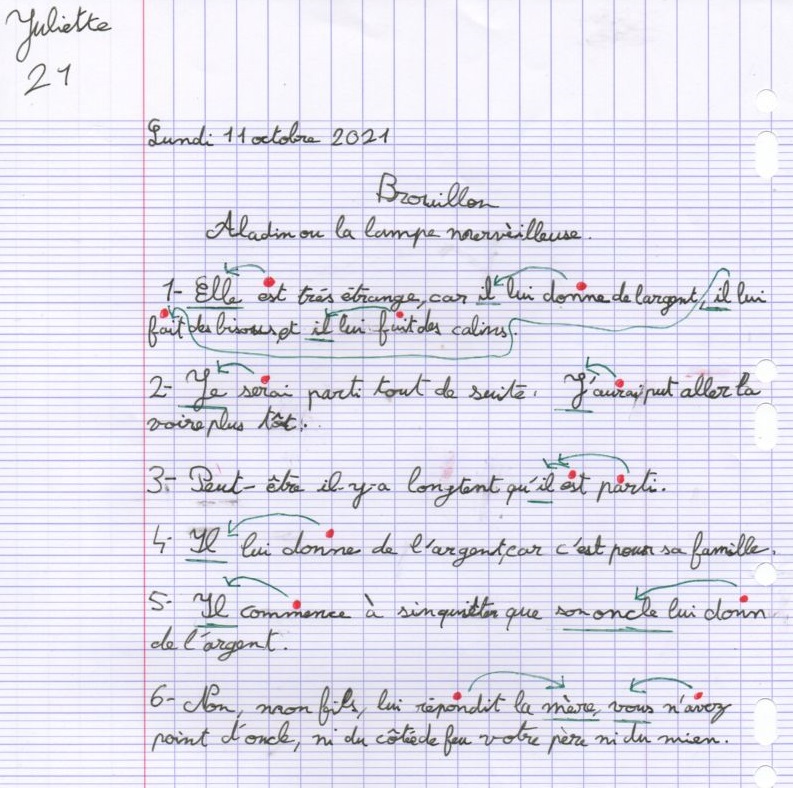 Juliette
21
Lundi 11 octobre 2021
Brouillon
Aladin ou la lampe merveilleuse.
1- Elle est très étrange, car il lui donne de largent, il lui
fait des bisous, et il lui fait des calins.
2- Je serai parti tout de suite. J'aurai put aller la
voire plus tôt.
3- Peut-être il-y-a longtent qu'il est parti.
4- Il lui donne de l'argent, car c'est pour sa famille.
5- Il commence à sinquitter que son oncle lui donn
de l'argent.
6- Non, mon fils, lui répondit la mère, vous n'avez
point d'oncle, ni du côté de feu votre père ni du mien.